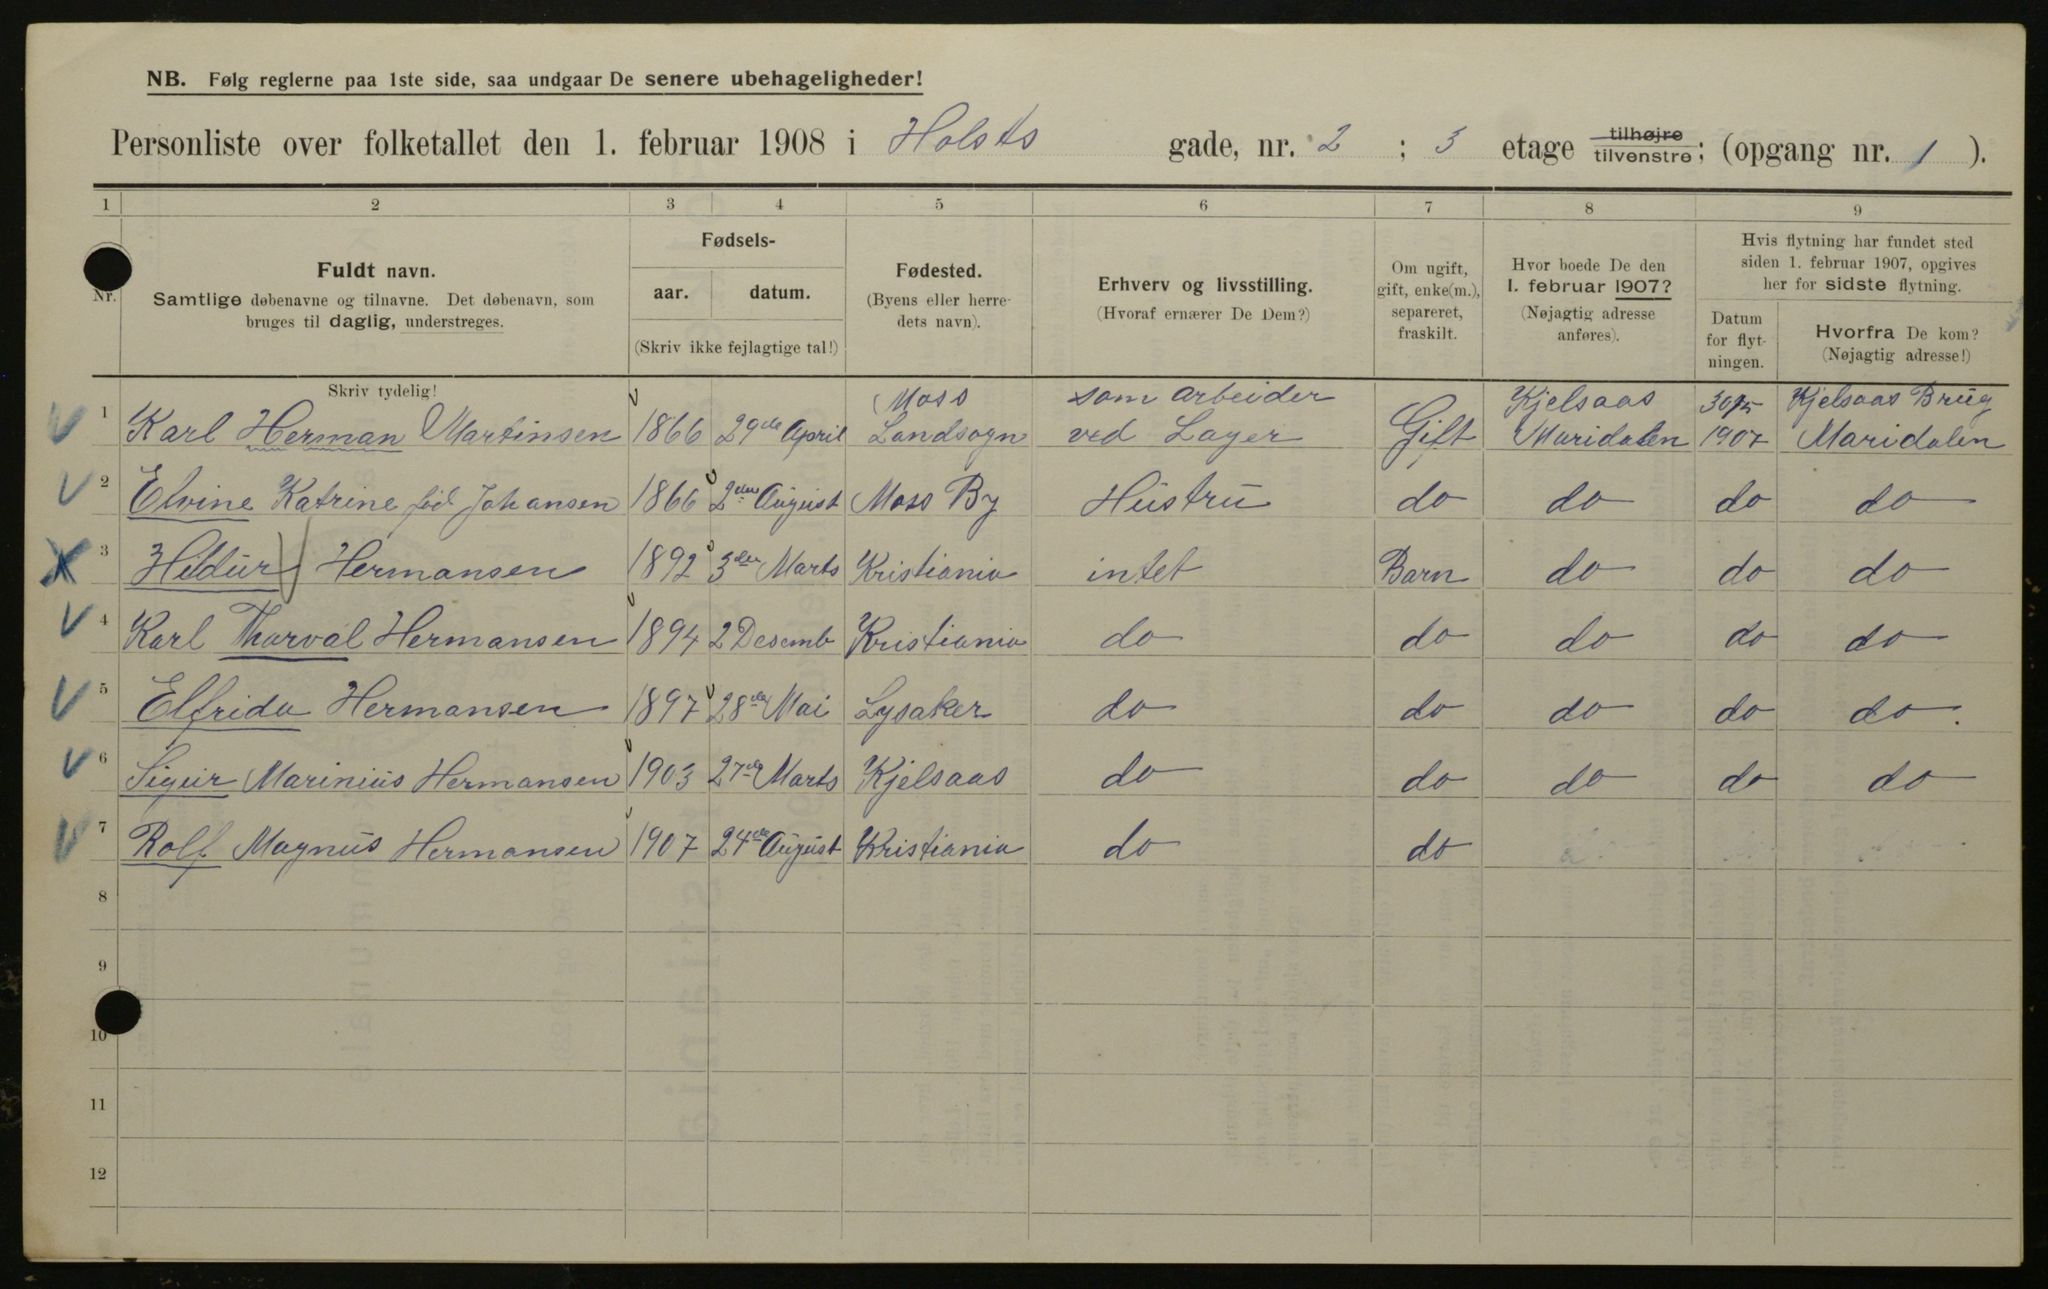 NB. Følg reglerne paa 1ste side, saa undgaar De senere ubehageligheder!
Personliste over folketallet den 1. februar 1908 i Holsts gade, nr. 2 ; 3 etage tilhøjre tilvenstre; (opgang nr. 1 ).
1 2 3 4 5 6 7 8 9
Nr.
Fuldt navn.
Samtlige døbenavne og tilnavne. Det døbenavn, som
bruges til daglig, understreges.
Skriv tydelig!
Fødsels-
aar. datum.
(Skriv ikke fejlagtige tal!)
Fødested.
(Byens eller herre-
dets navn).
Erhverv og livsstilling.
(Hvoraf ernærer De Dem?)
Om ugift,
gift, enke(m.),
separeret,
fraskilt.
Hvor boede De den
1. februar 1907?
(Nøjagtig adresse
anføres).
Hvis flytning har fundet sted
siden 1. februar 1907, opgives
her for sidste flytning.
Datum
for flyt-
ningen.
Hvorfra De kom?
(Nøjagtig adresse!)
Moss som arbeider Kjelsaas Kjelsaas Brug
1 Karl Herman Martinsen 1866 29de April Landsogn ved Lager Gift Maridalen 1907 Maridalen
2 Elvine Katrine fød Johansen 1866 2den August Moss By Hustru do do do do
3 Hildur Hermansen 1892 3der Marts Kristiania intet Barn do do do
4 Karl Thorval Hermansen 1894 2 Desemb Kristiania do do do do do
5 Elfrida Hermansen 1897 28de Mai Lysaker do do do do do.
6 Sigur Marinius Hermansen 1903 27de Marts Kjelsaas do do do do do
7 Rolf Magnus Hermansen 1907 24de August Kristiania do do
8
9
10
11
12